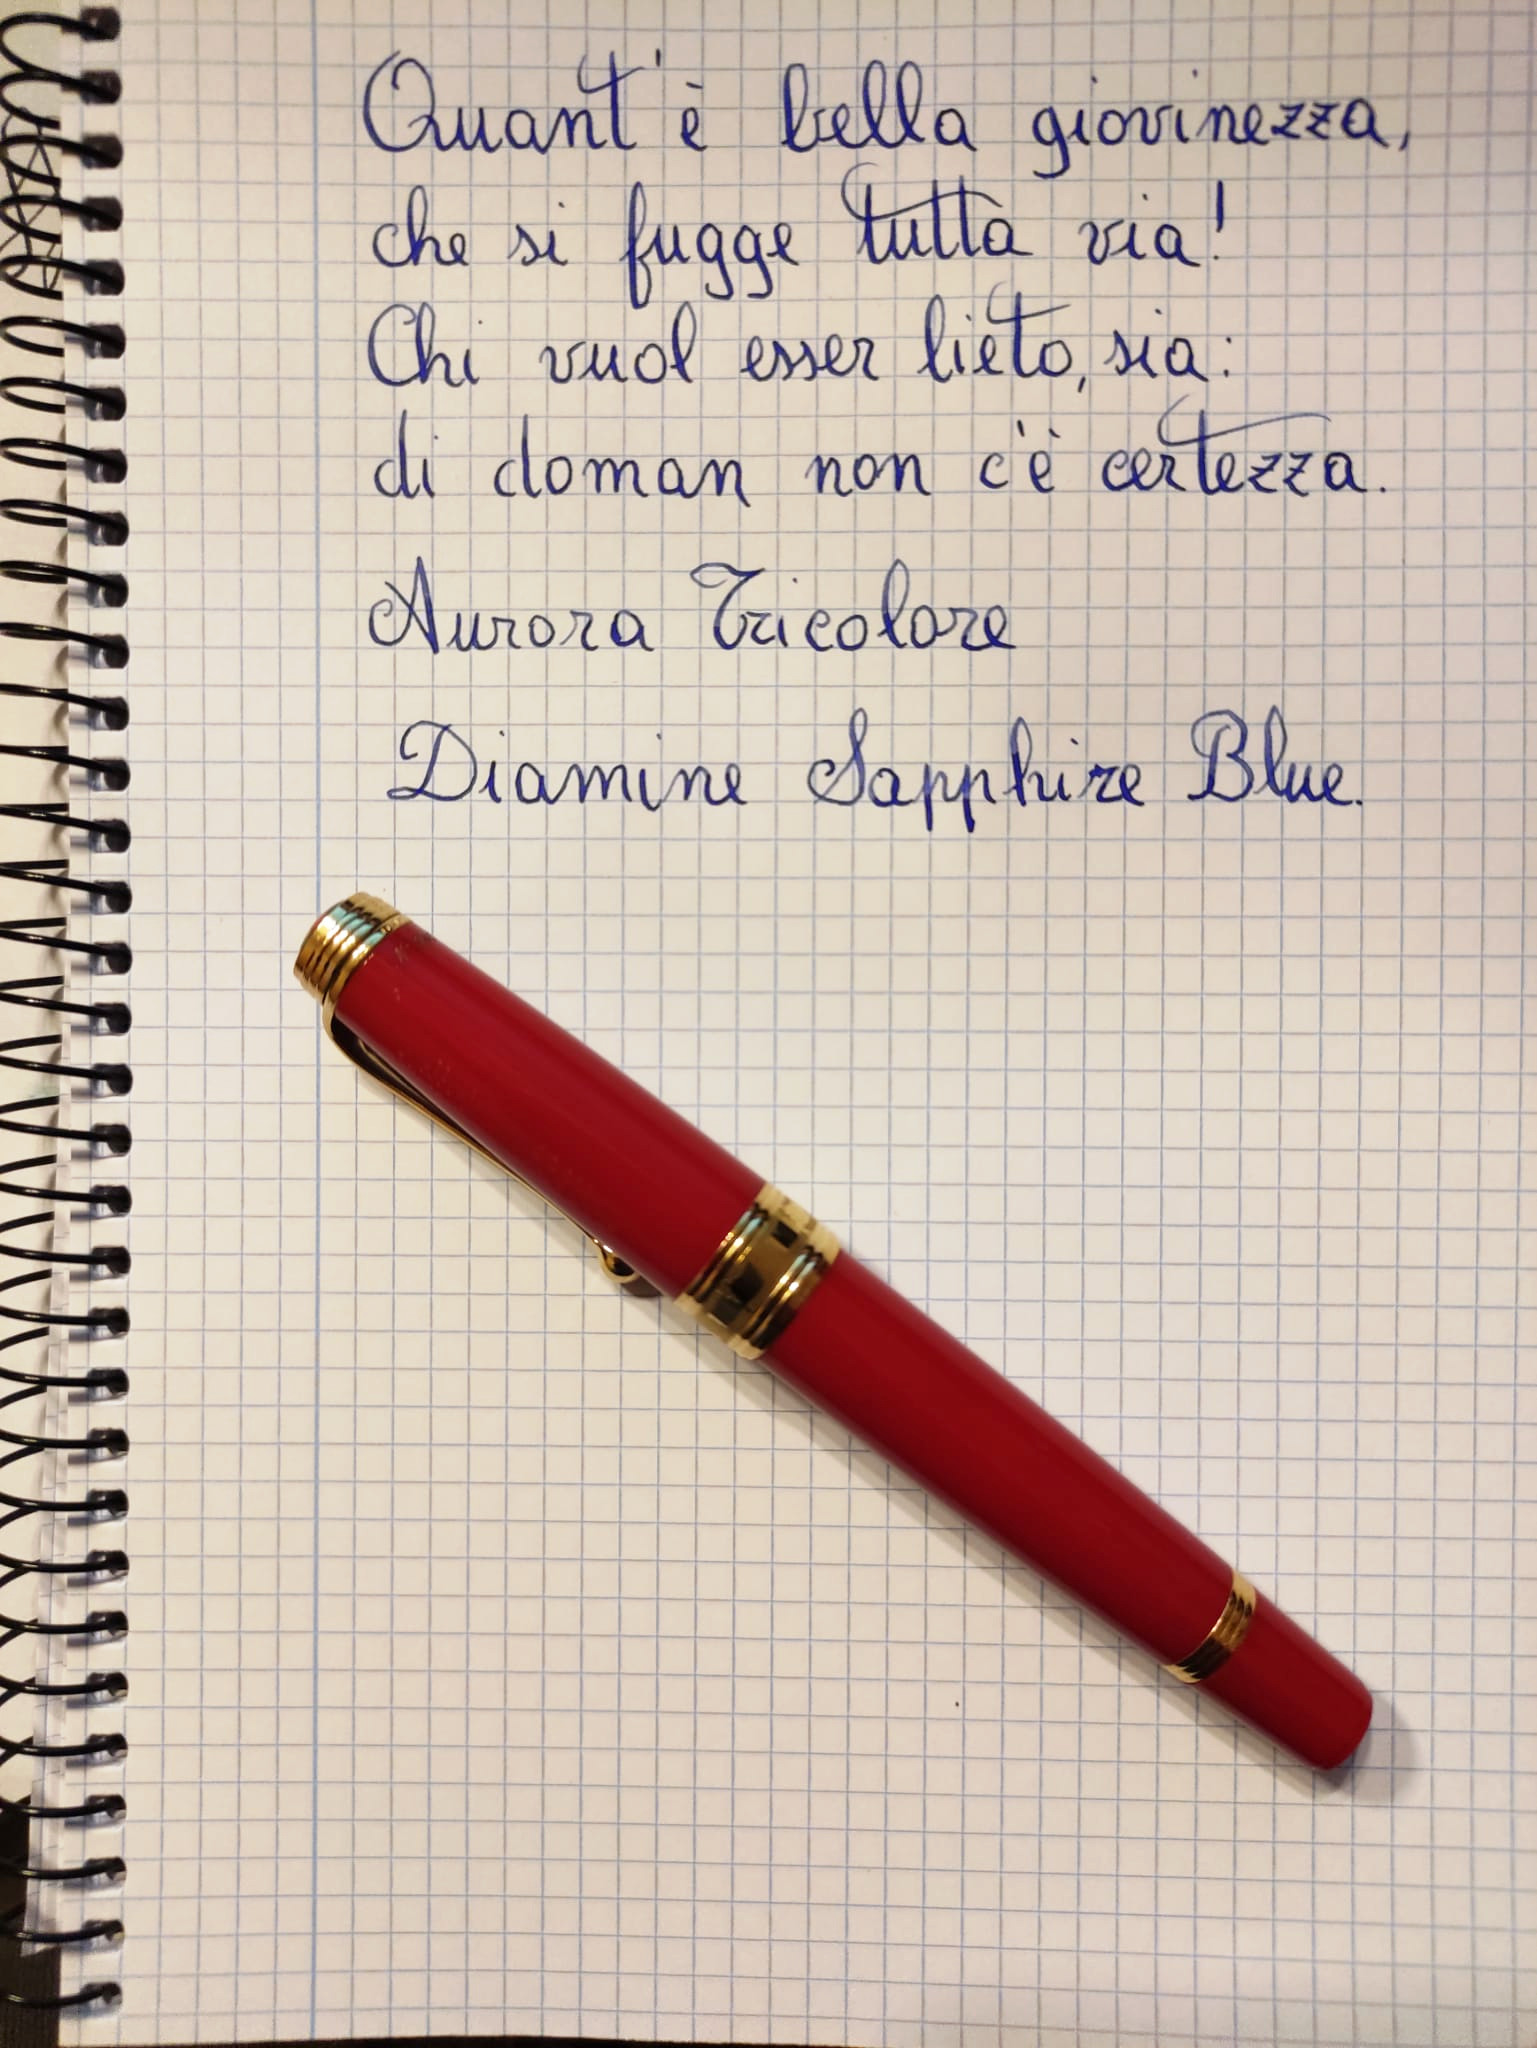 Quant'è bella giovinezza,
che si fugge tutta via!
Chi vuol esser lieto, sia:
di doman non c'è certezza.
Aurora Tricolore
Diamine Sapphire Blue.